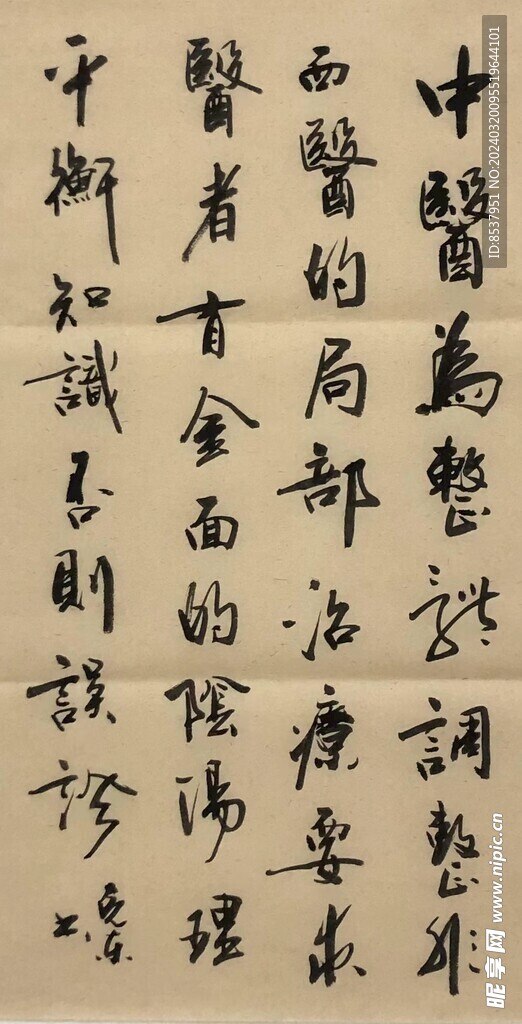 中醫為整體調整非
西醫的局部治療要求
醫者有全面的陰陽理
平衡知識否則誤診
克東書
ID:8537951 NO:20240320095519644101
昵享网 www.nipic.cn